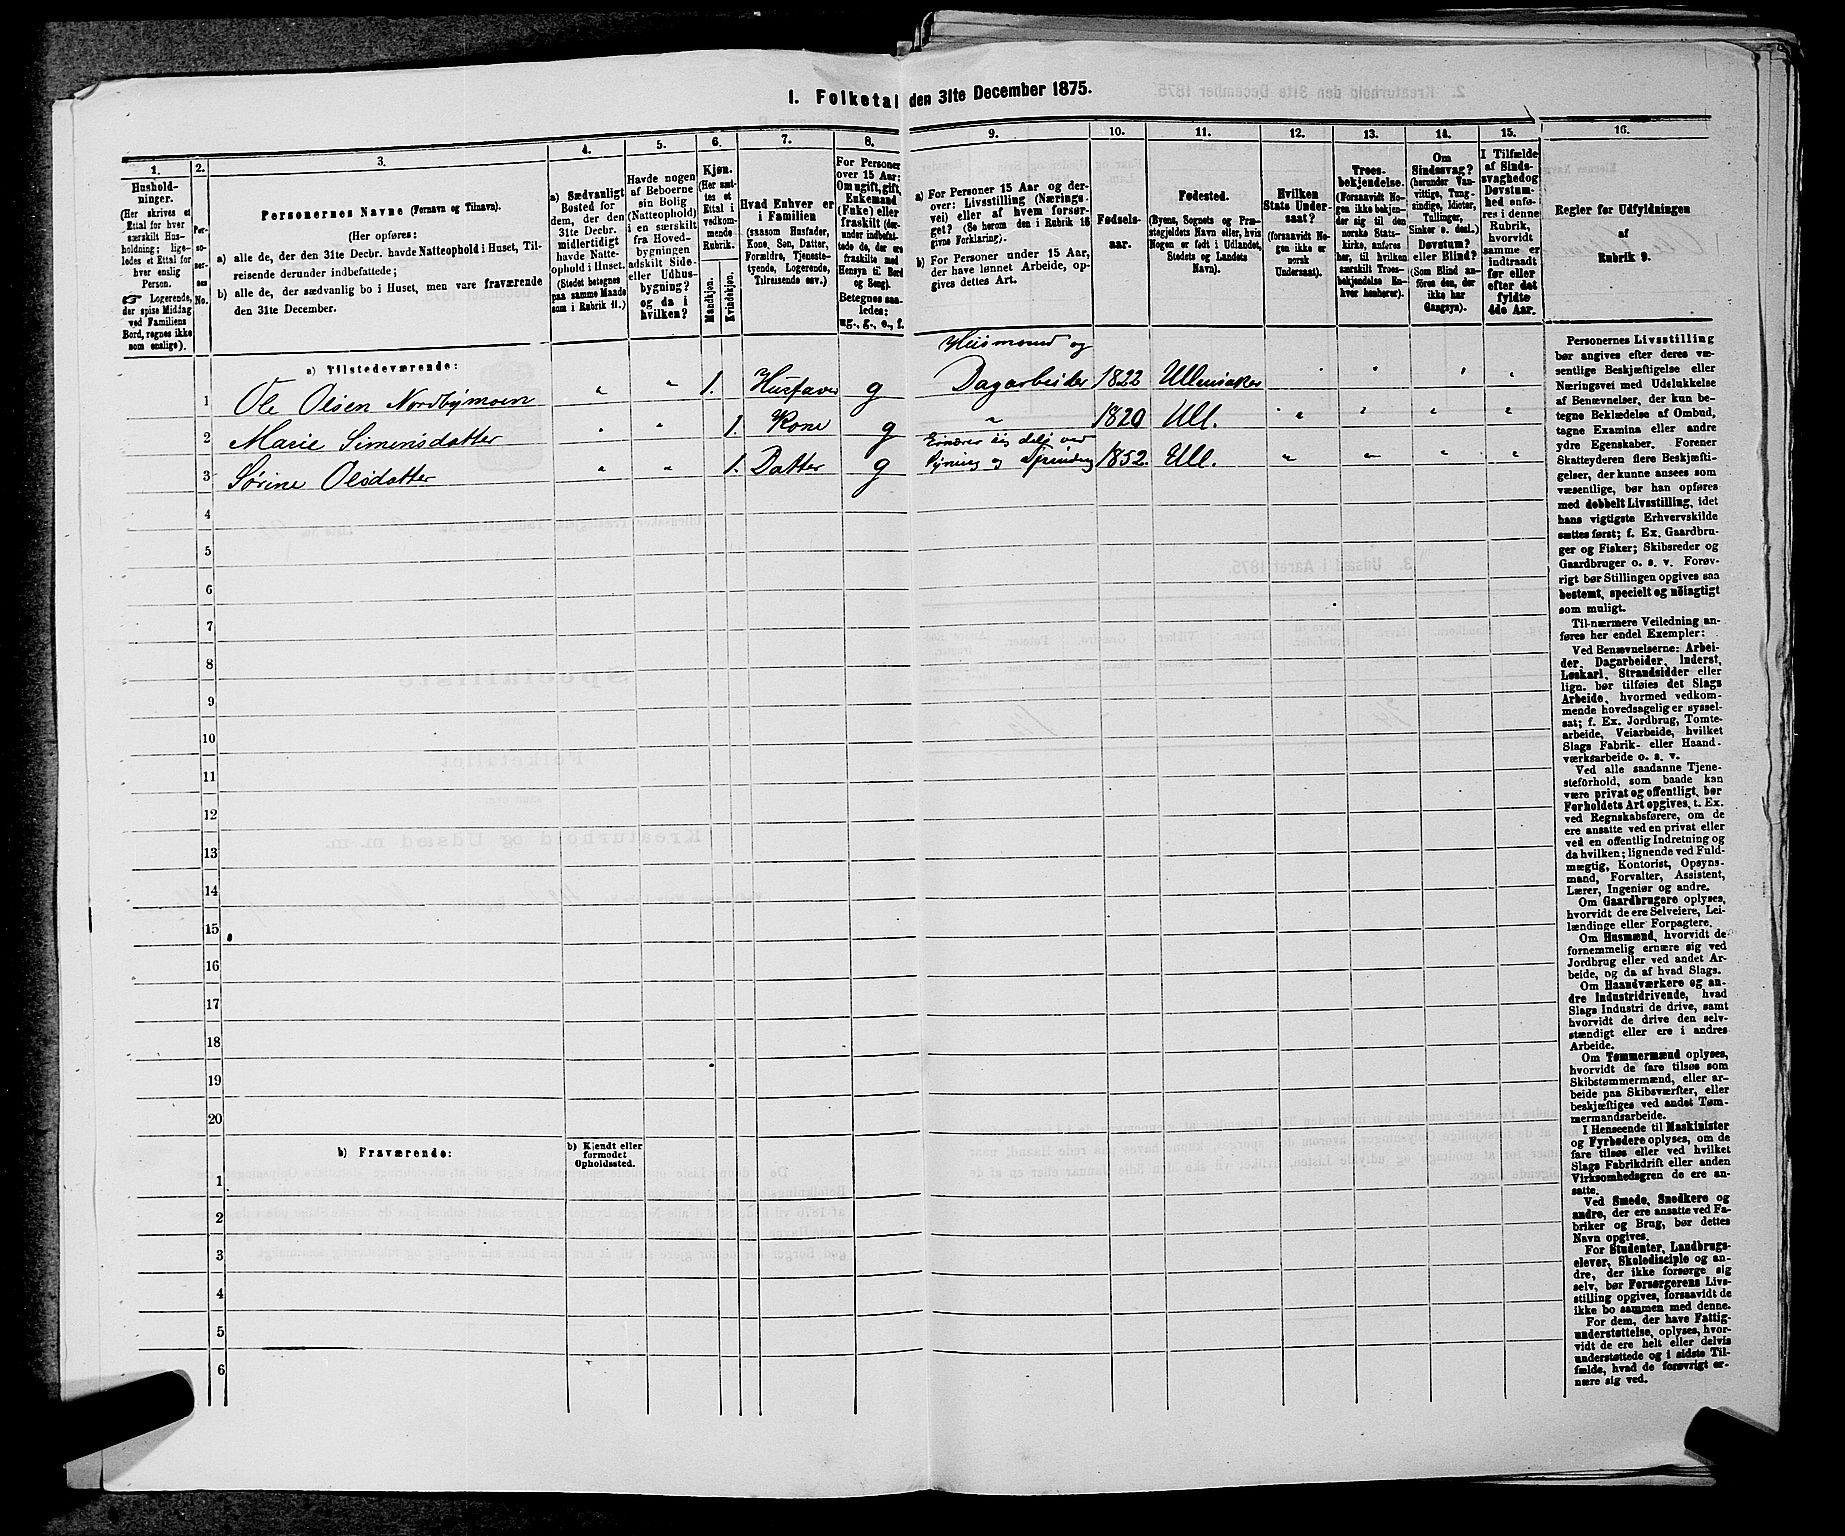 1. Folketal den 31te December 1875.
1.
Hushold-
ninger.
(Her skrives et
Ettal for hver
særskilt Hus-
holdning; lige-
ledes et Ettal for
hver enslig
Person.
☞ Logerende,
der spise Middag
ved Familiens
Bord, regnes ikke
som enslige).
2.
Per-
so-
ner-
nes
No.
3.
Personernes Navne (Fornavn og Tilnavn).
(Her opføres:
a) alle de, der den 31te Decbr. havde Natteophold i Huset, Til-
reisende derunder indbefattede;
b) alle de, der sædvanlig bo i Huset, men vare fraværende
den 31te December.
4.
a) Sædvanligt
Bosted for
dem, der den
31te Decbr.
midlertidigt
havde Natte-
ophold i Huset.
(Stedet betegnes
paa samme Maade
som i Rubrik 11.)
5.
Havde nogen
af Beboerne
sin Bolig
(Natteophold)
i en særskilt
fra Hoved-
bygningen
adskilt Side-
eller Udhus-
bygning?
og da i
hvilken?
6.
Kjøn.
(Her sæt-
tes et
Ettal i
vedkom-
mende
Rubrik.
Mandkjøn.
Kvindekjøn.
7.
Hvad Enhver er
i Familien
(saasom Husfader,
Kone, Søn, Datter,
Forældre, Tjeneste-
tyende, Logerende,
Tilreisende osv.)
8.
For Personer
over 15 Aar:
Om ugift, gift,
Enkemand
(Enke) eller
fraskilt (der-
under indbefat-
tede de, der ere
fraskilte med
Hensyn til Bord
og Seng).
Betegnes saa-
ledes:
ug., g., e., f.
9.
a) For Personer 15 Aar og der-
over: Livsstilling (Nærings-
vei) eller af hvem forsør-
get? (Se herom den i Rubrik 16
givne Forklaring).
b) For Personer under 15 Aar,
der have lønnet Arbeide, op-
gives dettes Art.
10.
Fødsels-
aar.
11.
Fødested.
(Byens, Sognets og Præ-
stegjeldets Navn eller, hvis
Nogen er født i Udlandet,
Stedets og Landets
Navn).
12.
Hvilken
Stats Under-
saat?
(forsaavidt No-
gen ikke er
norsk
Undersaat).
13.
Troes-
bekjendelse.
(Forsaavidt No-
gen ikke bekjen-
der sig til den
norske Stats-
kirke, anføres
her, til hvilken
særskilt Troes-
bekjendelse En-
hver henhører).
14.
Om
Sindssvag?
(herunder Van-
vittige, Tung-
sindige, Idioter,
Tullinger,
Sinker o. desl.)
Døvstum?
eller Blind?
(Som Blind an-
føres den, der
ikke har
Gangsyn).
15.
I Tilfælde
af Sinds-
svaghed og
Døvstum-
hed anfø-
res i denne
Rubrik,
hvorvidt
samme er
indtraadt
før eller
efter det
fyldte
4de Aar.
16.
Regler før Udfyldningen
af
Rubrik 9.
a) Tilstedeværende:
Husmand og
1 Ole Olsen Nordbymoen „ „ 1. Husfader g Dagarbeider 1822 Ullensaker
2 Marie Simensdatter „ „ 1. Kone g „ 1820 Ull. „ „ „ „
Ernærer sig dels ved
3 Sørine Olsdatter „ „ 1. Datter g Syning og Spinding 1852. Ull. „ „ „ „
4
5
6
7
8
9
10
11
12
13
14
15
16
17
18
19
20
b) Fraværende:
b) Kjendt eller
formodet
Opholdssted.
1
2
3
4
5
6
Personernes Livsstilling
bør angives efter deres væ-
sentlige Beskjæftigelse eller
Næringsvei med Udelukkelse
af Benævnelser, der kun be-
tegne Beklædelse af Ombud,
tagne Examina eller andre
ydre Egenskaber. Forener
Skatteyderen flere Beskjæfti-
gelser, der kunne ansees som
væsentlige, bør han opføres
med dobbelt Livsstilling, idet
hans vigtigste Erhvervskilde
sættes først; f. Ex. Gaardbru-
ger og Fisker; Skibsreder og
Gaardbruger o. s. v. Forøv-
rigt bør Stillingen opgives saa
bestemt, specielt og nöiagtigt
som muligt.
Til nærmere Veiledning an-
føres her endel Exempler:
Ved Benævnelserne: Arbei-
der, Dagarbeider, Inderst,
Løskarl, Strandsidder eller
lign. bør tilføies det Slags
Arbeide, hvormed vedkom-
mende hovedsagelig er syssel-
sat; f. Ex. Jordbrug, Tomte-
arbeide, Veiarbeide, hvilket
Slags Fabrik- eller Haand-
værksarbeide o. s. v.
Ved alle saadanne Tjene-
steforhold, som baade kan
være privat og offentligt, bør
Forholdets Art opgives, t. Ex.
ved Regnskabsførere, om de
ere ansatte ved en privat eller
ved en offentlig Indretning og
da hvilken; lignende ved Fuld-
mægtig, Kontorist, Opsyns-
mand, Forvalter, Assistent,
Lærer, Ingeniør og andre.
Om Gaardbrugere oplyses,
hvorvidt de ere Selveiere, Lei-
lændinge eller Forpagtere.
Om Husmænd, hvorvidt de
fornemmelig ernære sig ved
Jordbrug eller ved andet Ar-
beide, og da af hvad Slags.
Om Haandværkere og an-
dre Industridrivende, hvad
Slags Industri de drive, samt
hvorvidt de drive den selv-
stændigt eller ere i andres
Arbeide.
Om Tømmermænd oplyses,
hvorvidt de fare tilsøs som
Skibstømmermænd, eller ar-
beide paa Skibsværfter, eller
beskjæftiges ved andet Tøm-
mermandsarbeide.
I Henseende til Maskinister
og Fyrbødere oplyses, om de
fare tilsøs eller ved hvilket
Slags Fabrikdrift eller anden
Virksomhedsgren de ere an-
satte.
Ved Smede, Snedkere og
andre, der ere ansatte ved Fa-
briker og Brug, bør dettes
Navn opgives.
For Studenter, Landbrugs-
elever, Skoledisciple og an-
dre, der ikke forsørge sig
selv, bør Forsørgerens Livs-
stilling opgives, forsaavidt de
ikke bo sammen med denne.
For dem, der have Fattig-
understøttelse, oplyses, hvor-
vidt de ere helt eller delvis
understøttede og i sidste Til-
fælde, hvad de forøvrigt er-
nære sig ved.